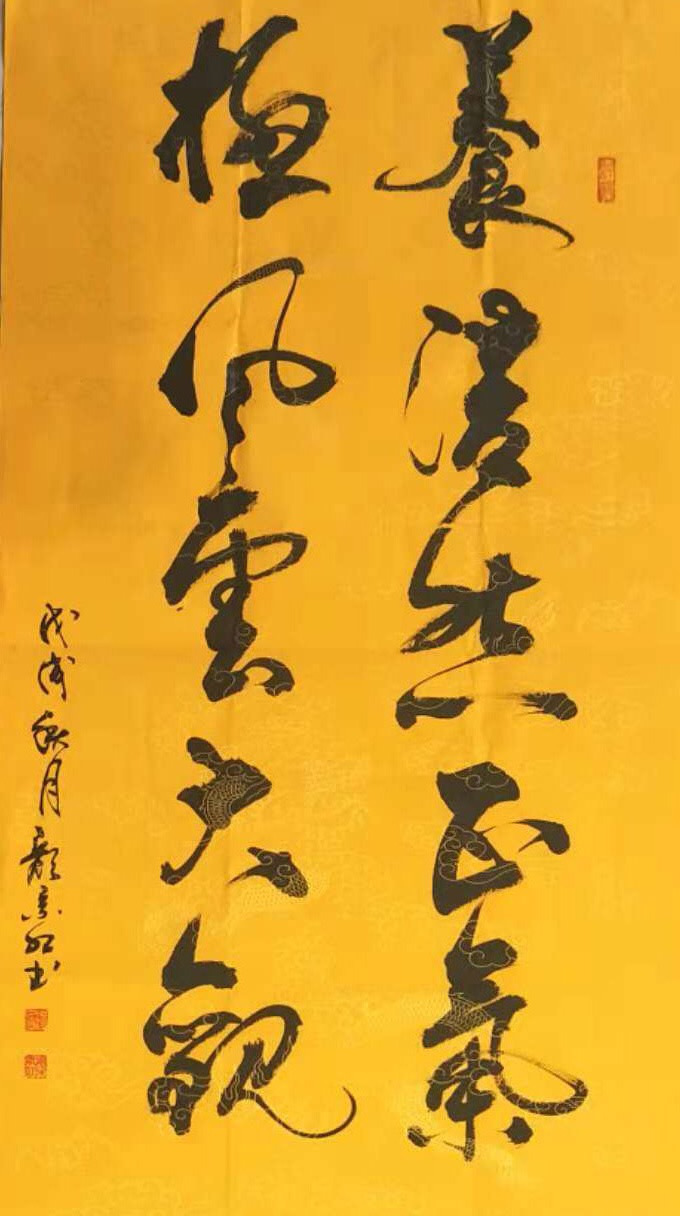 養浩然正氣
極風雲大觀
戊戌秋月顏景紅書